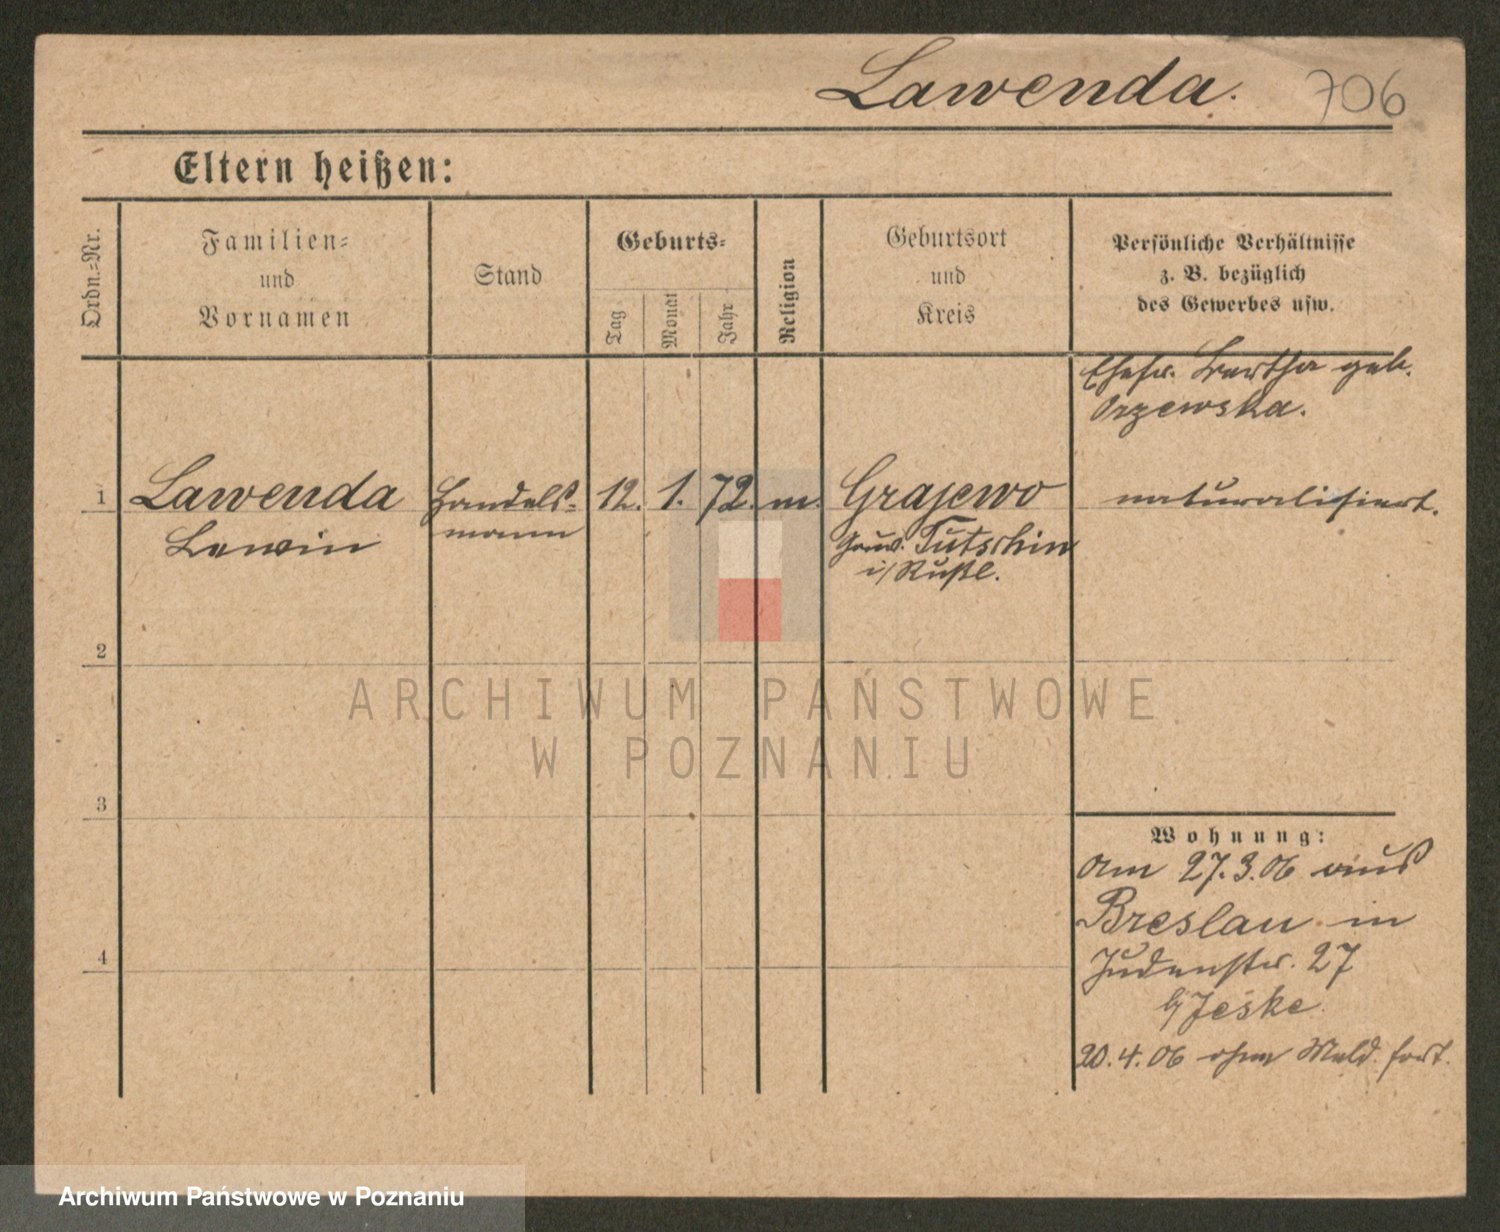 Lawenda. 706
Eltern heißen:
Ordn.=Nr.
Familien=
und
Vornamen
Stand
Geburts=
Tag
Monat
Jahr
Religion
Geburtsort
und
Kreis
Persönliche Verhältnisse
z. B. bezüglich
des Gewerbes usw.
Ehefr. Bertha geb.
Orzewska.
1 Lawenda Handels= 12. 1. 72. m. Grajewo naturalisiert.
Lewin mann Gouv. Tutschin
i/Rußl.
2
3
4
Wohnung:
Am 27.3.06 aus
Breslau in
Judenstr. 27
b/Jeske
20.4.06 ohne Meld. fort.
ARCHIWUM PAŃSTWOWE
W POZNANIU
Archiwum Państwowe w Poznaniu